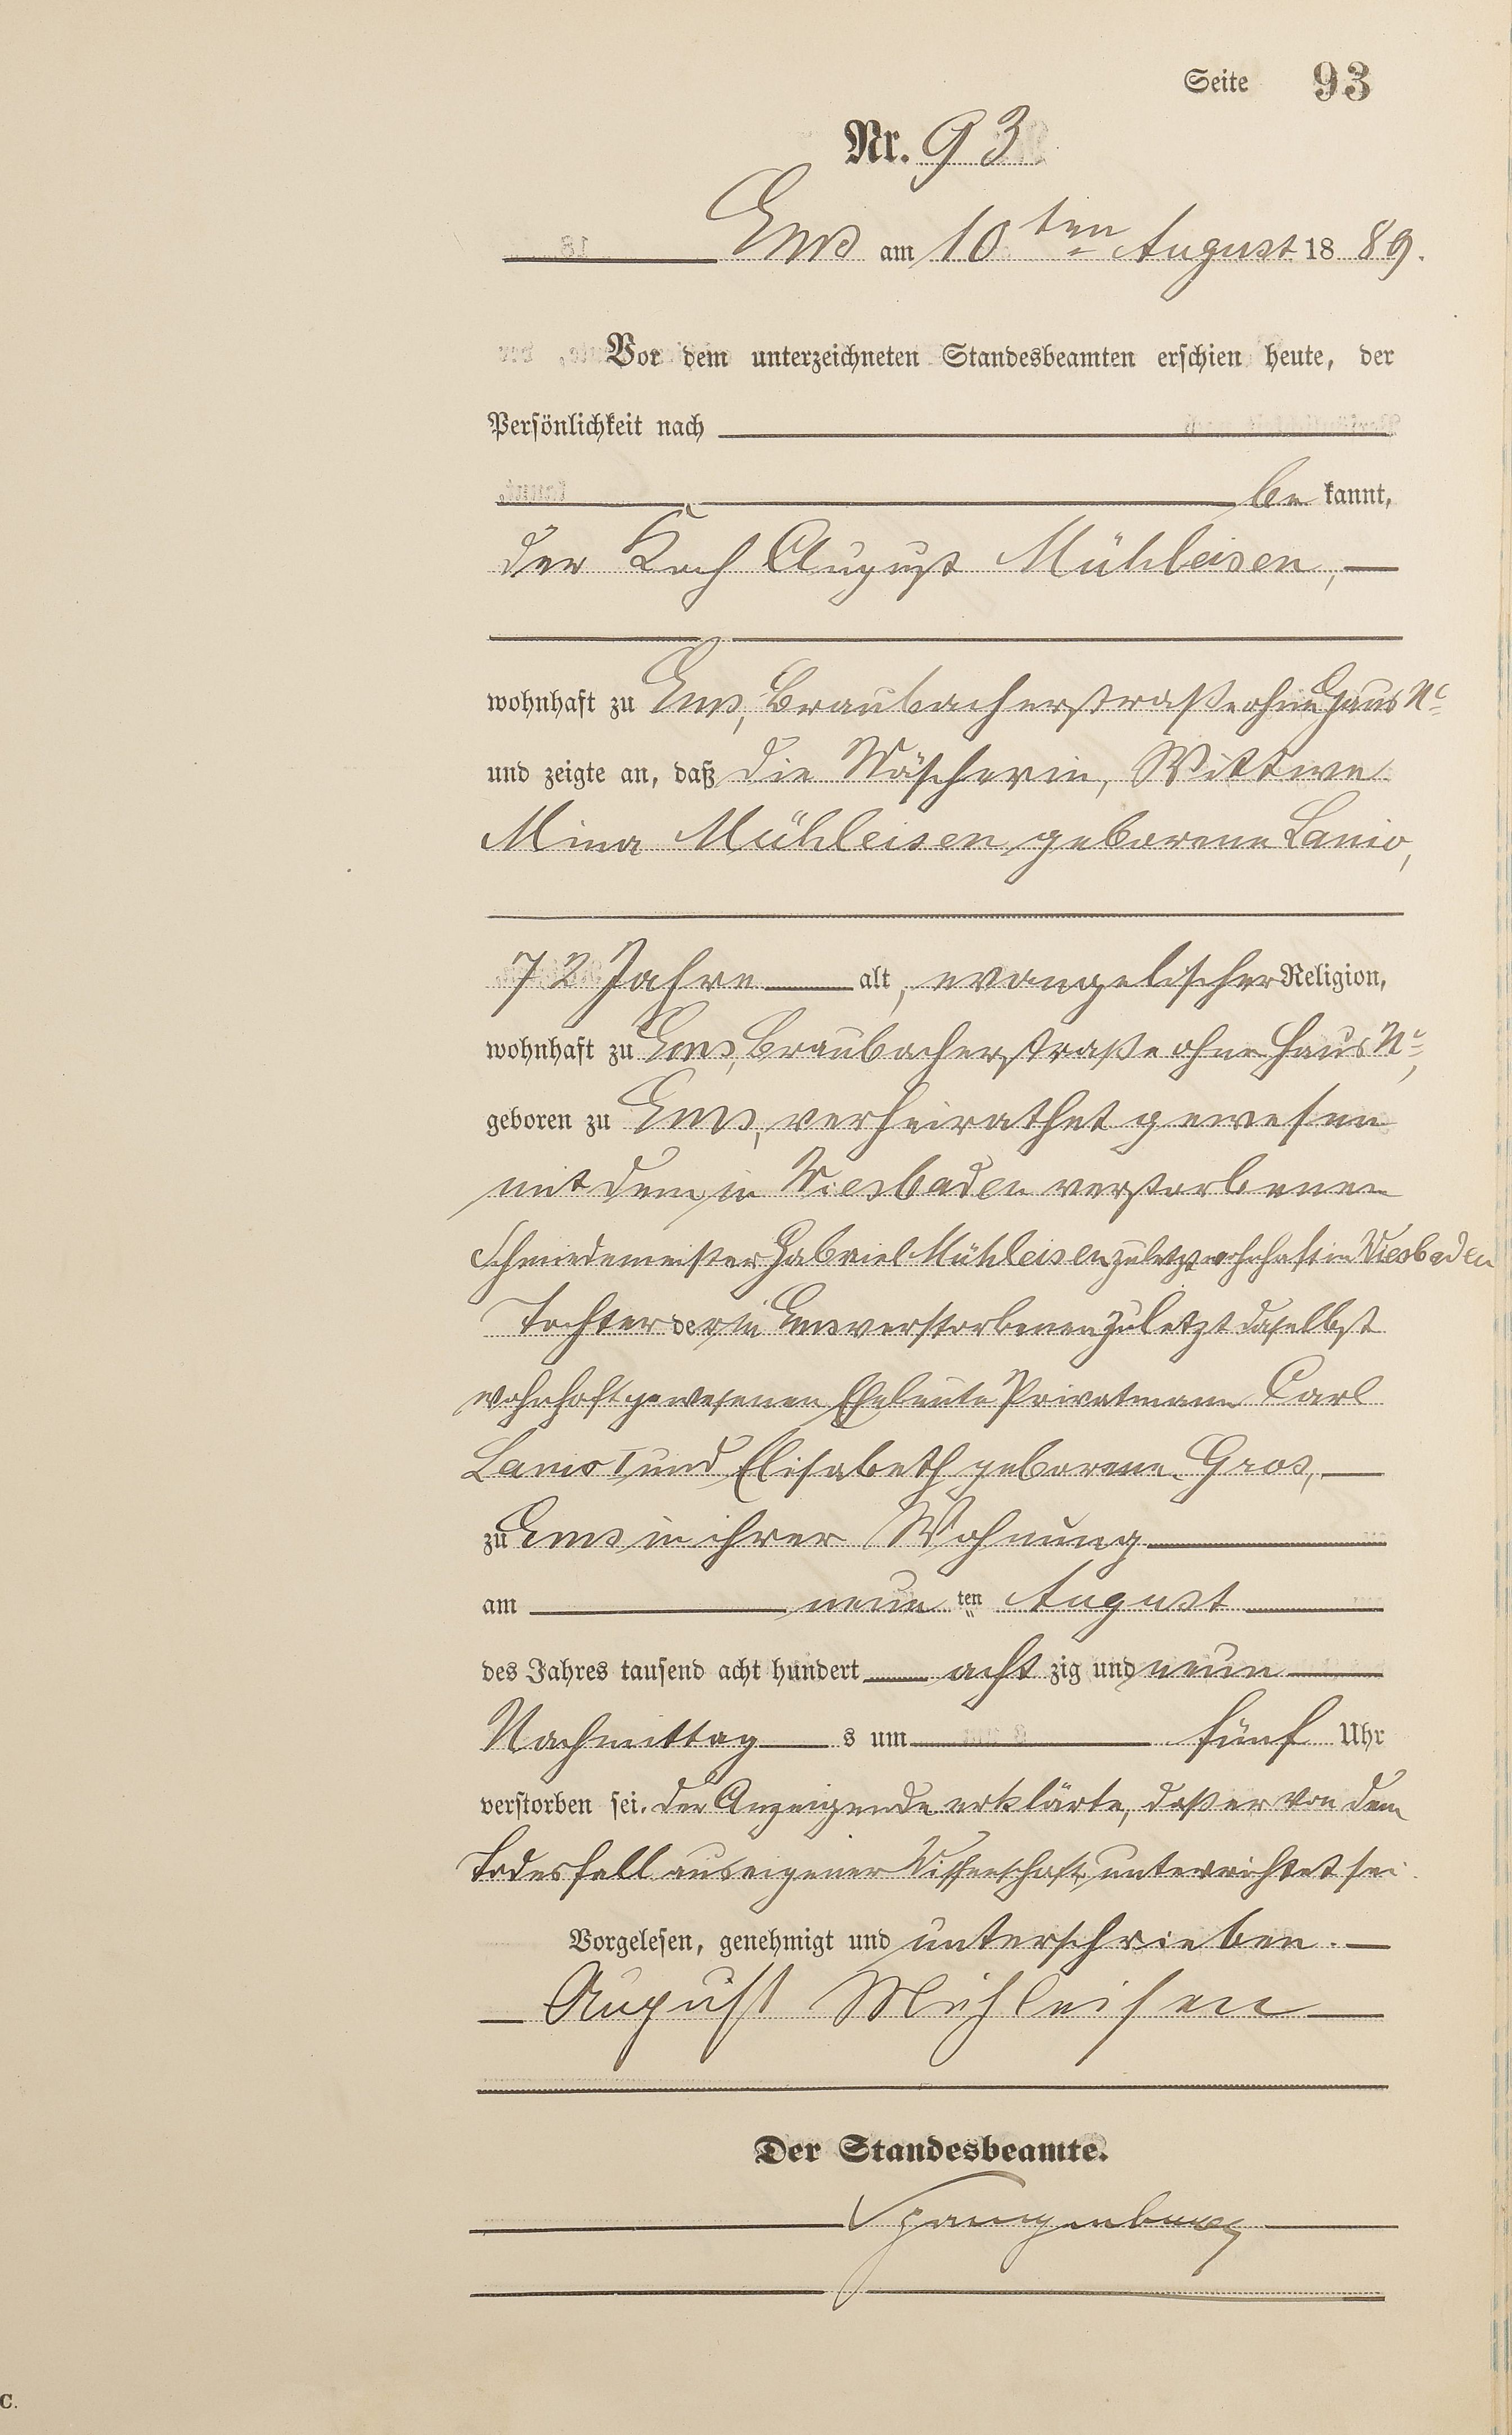 Seite 93
Nr. 93
Ems am 10ten August 18 89.
Vor dem unterzeichneten Standesbeamten erschien heute, der
Persönlichkeit nach
be kannt,
der Koch August Mühleisen,
wohnhaft zu Ems, Braubacherstraße ohne Haus No
und zeigte an, daß die Wäscherin, Wittwe
Mina Mühleisen geborene Lanio,
72 Jahre alt, evangelischer Religion,
wohnhaft zu Ems, Braubacherstraße ohne Haus No,
geboren zu Ems, verheirathet gewesen
mit dem in Wiesbaden verstorbenen
Schmiedemeister Gabriel Mühleisen zuletzt wohnhaft in Wiesbaden
Tochter der in Ems verstorbenen zuletzt daselbst
wohnhaft gewesenen Eheleute Privatmann Carl
Lanio I und Elisabeth geborene Gros,
zu Ems in ihrer Wohnung
am neun ten August
des Jahres tausend acht hundert acht zig und neun
Nachmittag s um fünf Uhr
verstorben sei. Der Anzeigende erklärte, daß er von dem
Todesfall aus eigener Wissenschaft unterrichtet sei.
Vorgelesen, genehmigt und unterschrieben.
August Mühleisen
Der Standesbeamte.
Spangenberg
C.